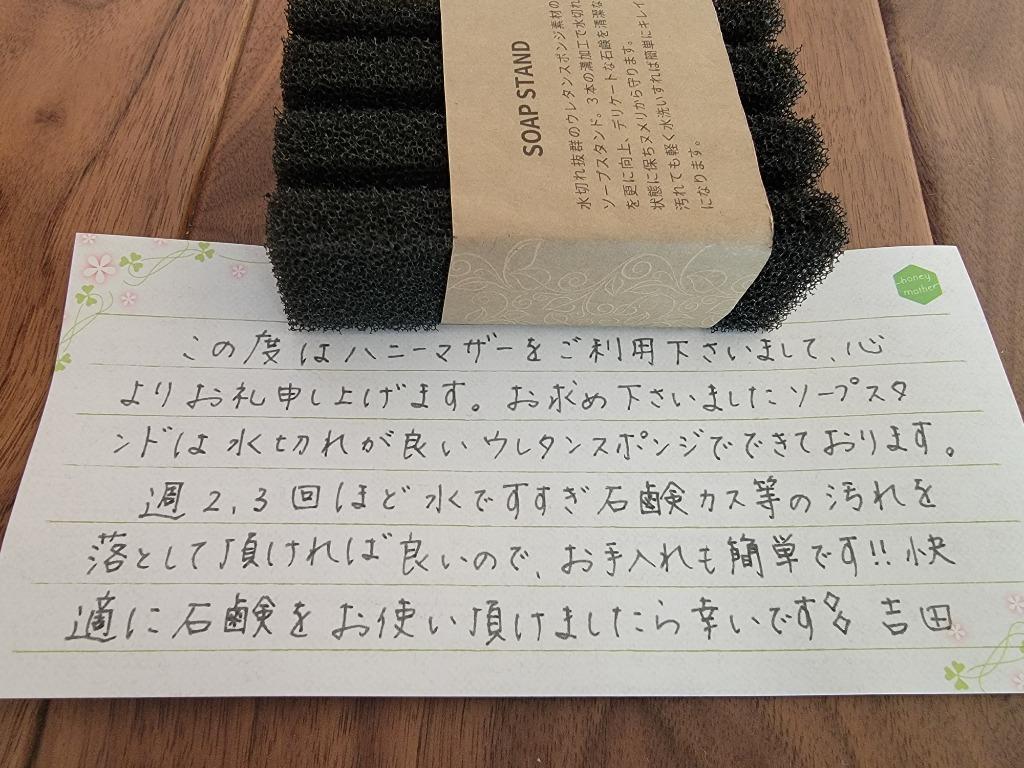 SOAP STAND
水切れ抜群のウレタンスポンジ素材の
ソープスタンド。3本の溝加工で水切れ
を更に向上、デリケートな石鹸を清潔な
状態に保ちヌメリから守ります。
汚れても軽く水洗いすれば簡単にキレイ
になります。
honey
mother
この度はハニーマザーをご利用下さいまして、心
よりお礼申し上げます。お求め下さいましたソープスタ
ンドは水切れが良いウレタンスポンジでできております。
週2,3回ほど水ですすぎ石鹸カス等の汚れを
落として頂ければ良いので、お手入れも簡単です!!快
適に石鹸をお使い頂けましたら幸いです 吉田